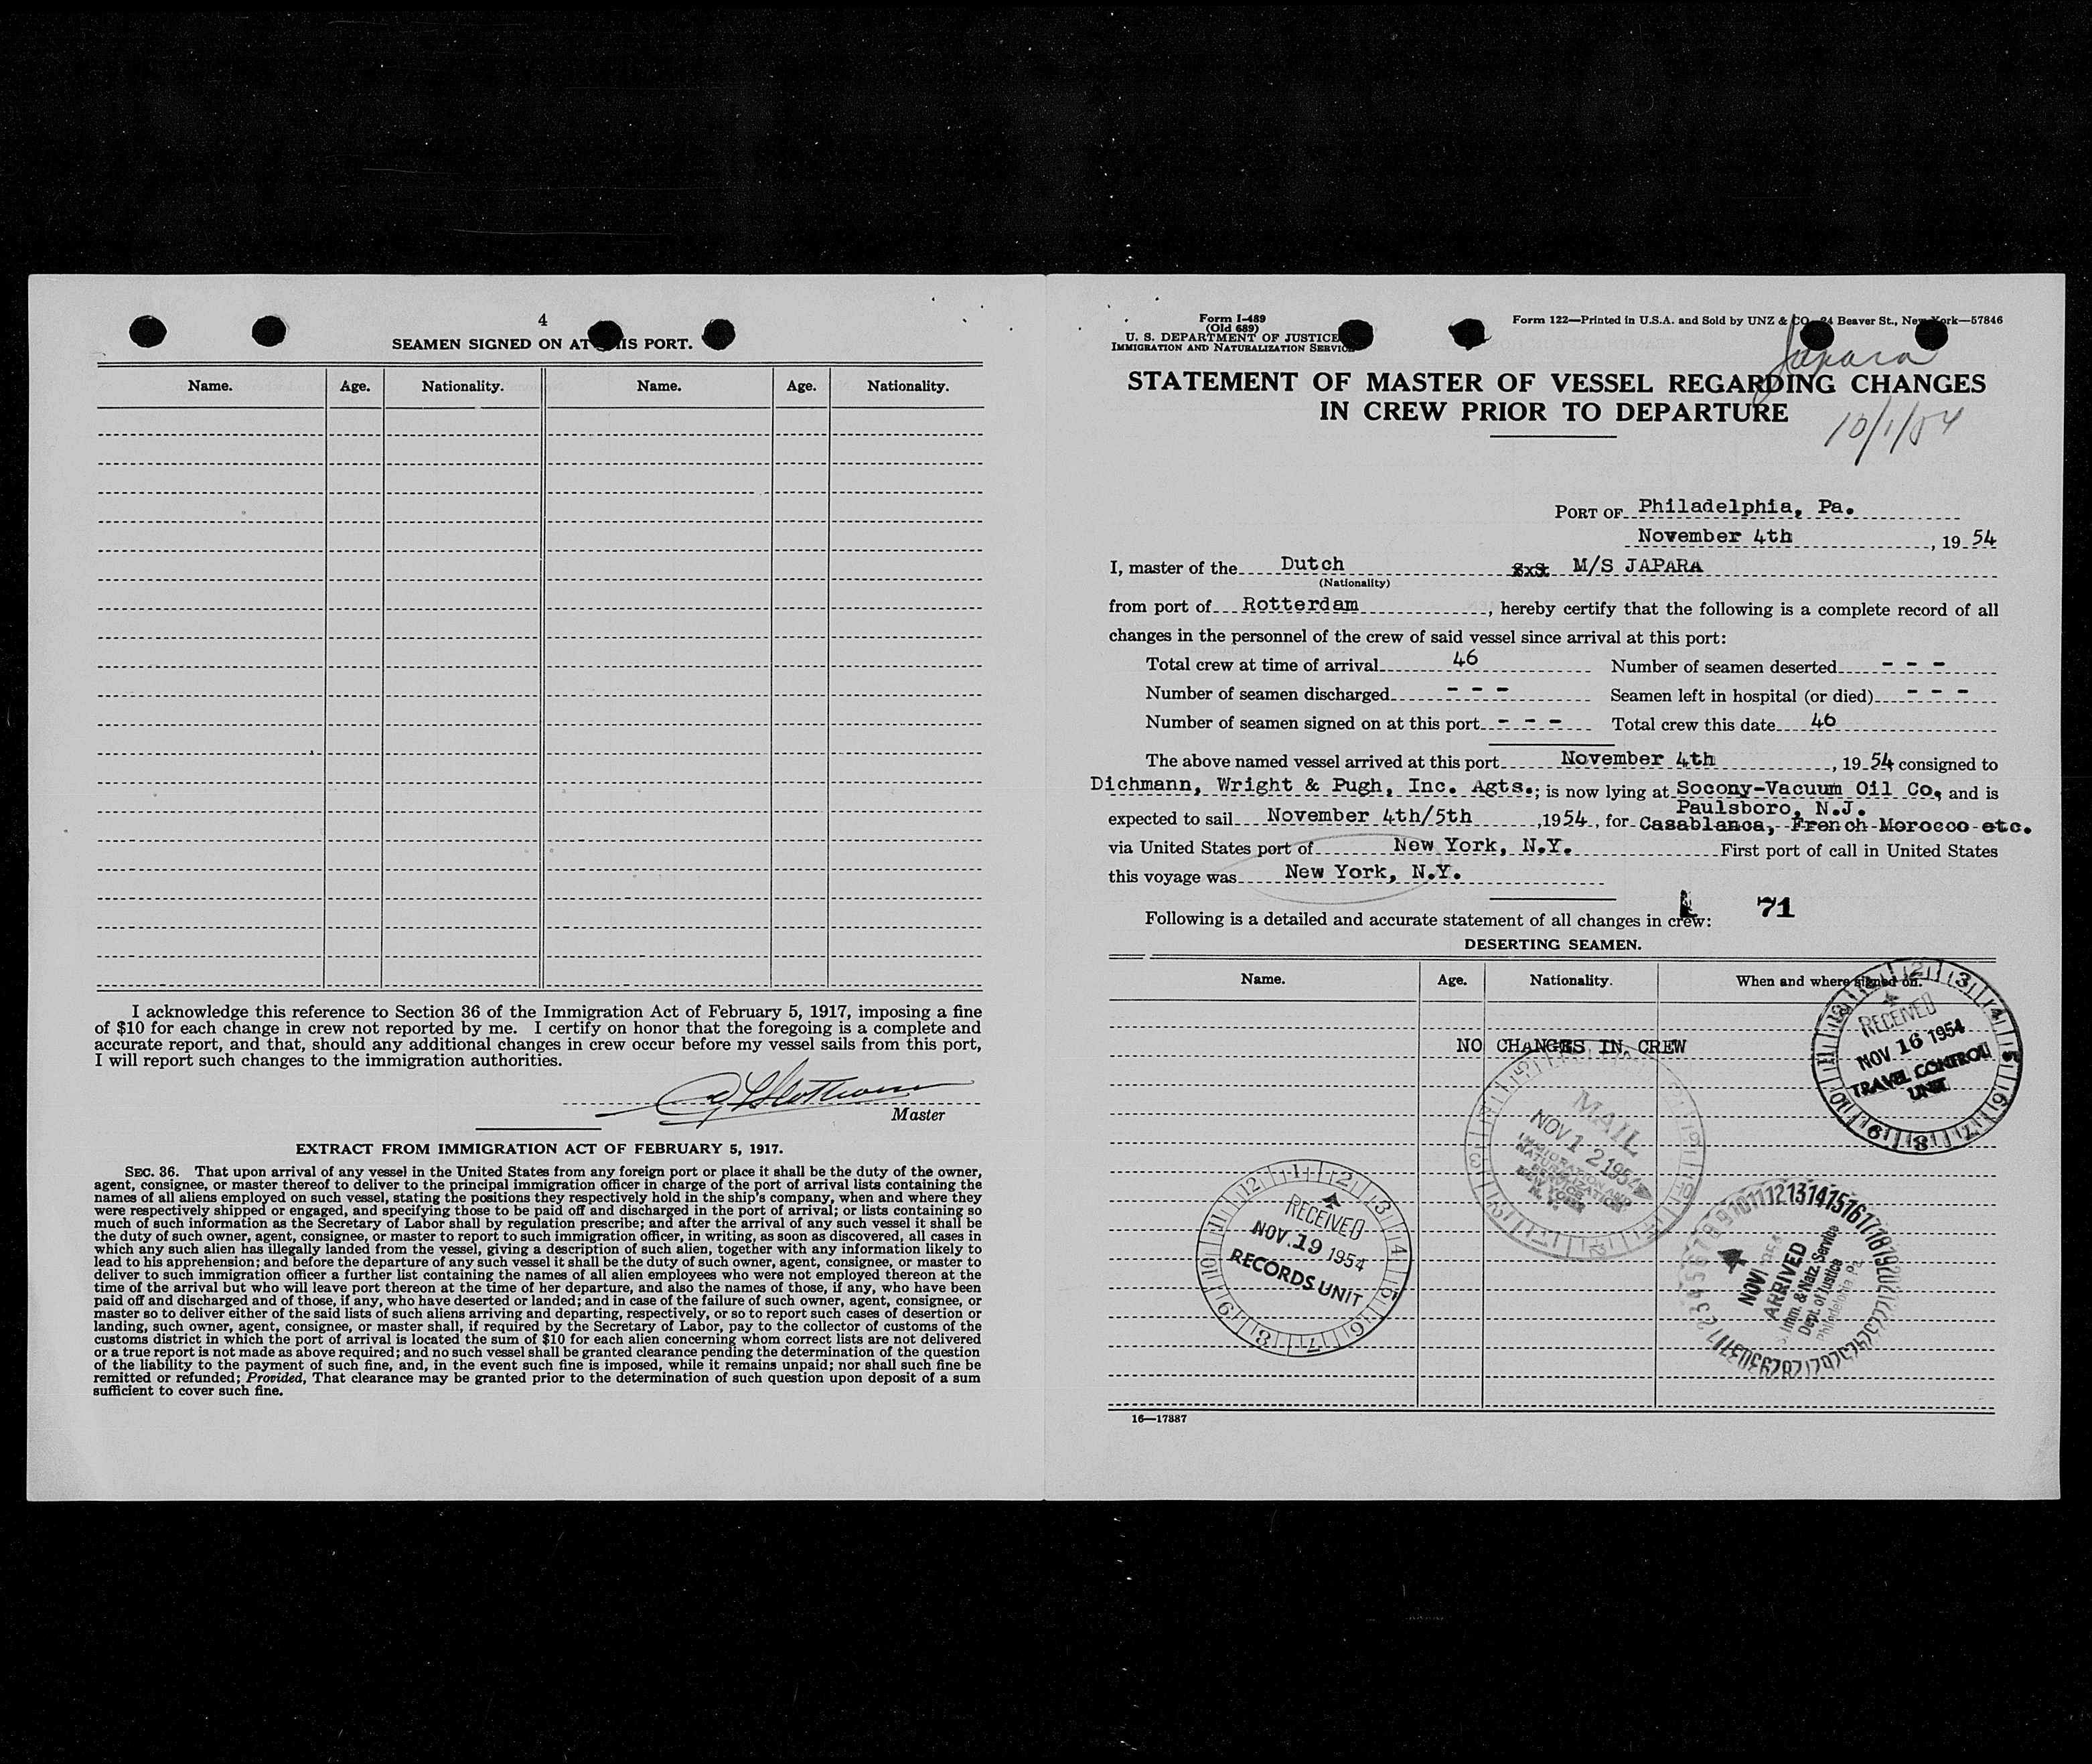 4
SEAMEN SIGNED ON AT THIS PORT.
Name. Age. Nationality. Name. Age. Nationality.
I acknowledge this reference to Section 36 of the Immigration Act of February 5, 1917, imposing a fine
of $10 for each change in crew not reported by me. I certify on honor that the foregoing is a complete and
accurate report, and that, should any additional changes in crew occur before my vessel sails from this port,
I will report such changes to the immigration authorities.
Master
EXTRACT FROM IMMIGRATION ACT OF FEBRUARY 5, 1917.
SEC. 36. That upon arrival of any vessel in the United States from any foreign port or place it shall be the duty of the owner,
agent, consignee, or master thereof to deliver to the principal immigration officer in charge of the port of arrival lists containing the
names of all aliens employed on such vessel, stating the positions they respectively hold in the ship's company, when and where they
were respectively shipped or engaged, and specifying those to be paid off and discharged in the port of arrival; or lists containing so
much of such information as the Secretary of Labor shall by regulation prescribe; and after the arrival of any such vessel it shall be
the duty of such owner, agent, consignee, or master to report to such immigration officer, in writing, as soon as discovered, all cases in
which any such alien has illegally landed from the vessel, giving a description of such alien, together with any information likely to
lead to his apprehension; and before the departure of any such vessel it shall be the duty of such owner, agent, consignee, or master to
deliver to such immigration officer a further list containing the names of all alien employees who were not employed thereon at the
time of the arrival but who will leave port thereon at the time of her departure, and also the names of those, if any, who have been
paid off and discharged and of those, if any, who have deserted or landed; and in case of the failure of such owner, agent, consignee, or
master so to deliver either of the said lists of such aliens arriving and departing, respectively, or so to report such cases of desertion or
landing, such owner, agent, consignee, or master shall, if required by the Secretary of Labor, pay to the collector of customs of the
customs district in which the port of arrival is located the sum of $10 for each alien concerning whom correct lists are not delivered
or a true report is not made as above required; and no such vessel shall be granted clearance pending the determination of the question
of the liability to the payment of such fine, and, in the event such fine is imposed, while it remains unpaid; nor shall such fine be
remitted or refunded; Provided, That clearance may be granted prior to the determination of such question upon deposit of a sum
sufficient to cover such fine.
Form I-489
(Old 689)
U. S. DEPARTMENT OF JUSTICE
IMMIGRATION AND NATURALIZATION SERVICE
Form 122—Printed in U.S.A. and Sold by UNZ & CO., 24 Beaver St., New York—57846
Japara
STATEMENT OF MASTER OF VESSEL REGARDING CHANGES
IN CREW PRIOR TO DEPARTURE
10/1/54
PORT OF Philadelphia, Pa.
November 4th, 19 54
I, master of the Dutch SxS M/S JAPARA
(Nationality)
from port of Rotterdam, hereby certify that the following is a complete record of all
changes in the personnel of the crew of said vessel since arrival at this port:
Total crew at time of arrival 46 Number of seamen deserted - - -
Number of seamen discharged - - - Seamen left in hospital (or died) - - -
Number of seamen signed on at this port - - - Total crew this date 46
The above named vessel arrived at this port November 4th, 19 54 consigned to
Dichmann, Wright & Pugh, Inc. Agts.; is now lying at Socony-Vacuum Oil Co, and is
Paulsboro, N.J.
expected to sail November 4th/5th, 1954, for Casablanca, French Morocco etc.
via United States port of New York, N.Y. First port of call in United States
this voyage was New York, N.Y.
71
Following is a detailed and accurate statement of all changes in crew:
DESERTING SEAMEN.
Name. Age. Nationality. When and where signed on.
NO CHANGES IN CREW
RECEIVED
NOV 16 1954
TRAVEL CONTROL
UNIT
MAIL
NOV 12 1954
IMMIGRATION AND
NATURALIZATION
SERVICE
NEW YORK
N. Y.
RECEIVED
NOV. 19 1954
RECORDS UNIT
NOV 1954
ARRIVED
Imm. & Natz. Service
Dept. of Justice
Philadelphia Pa.
16—17887